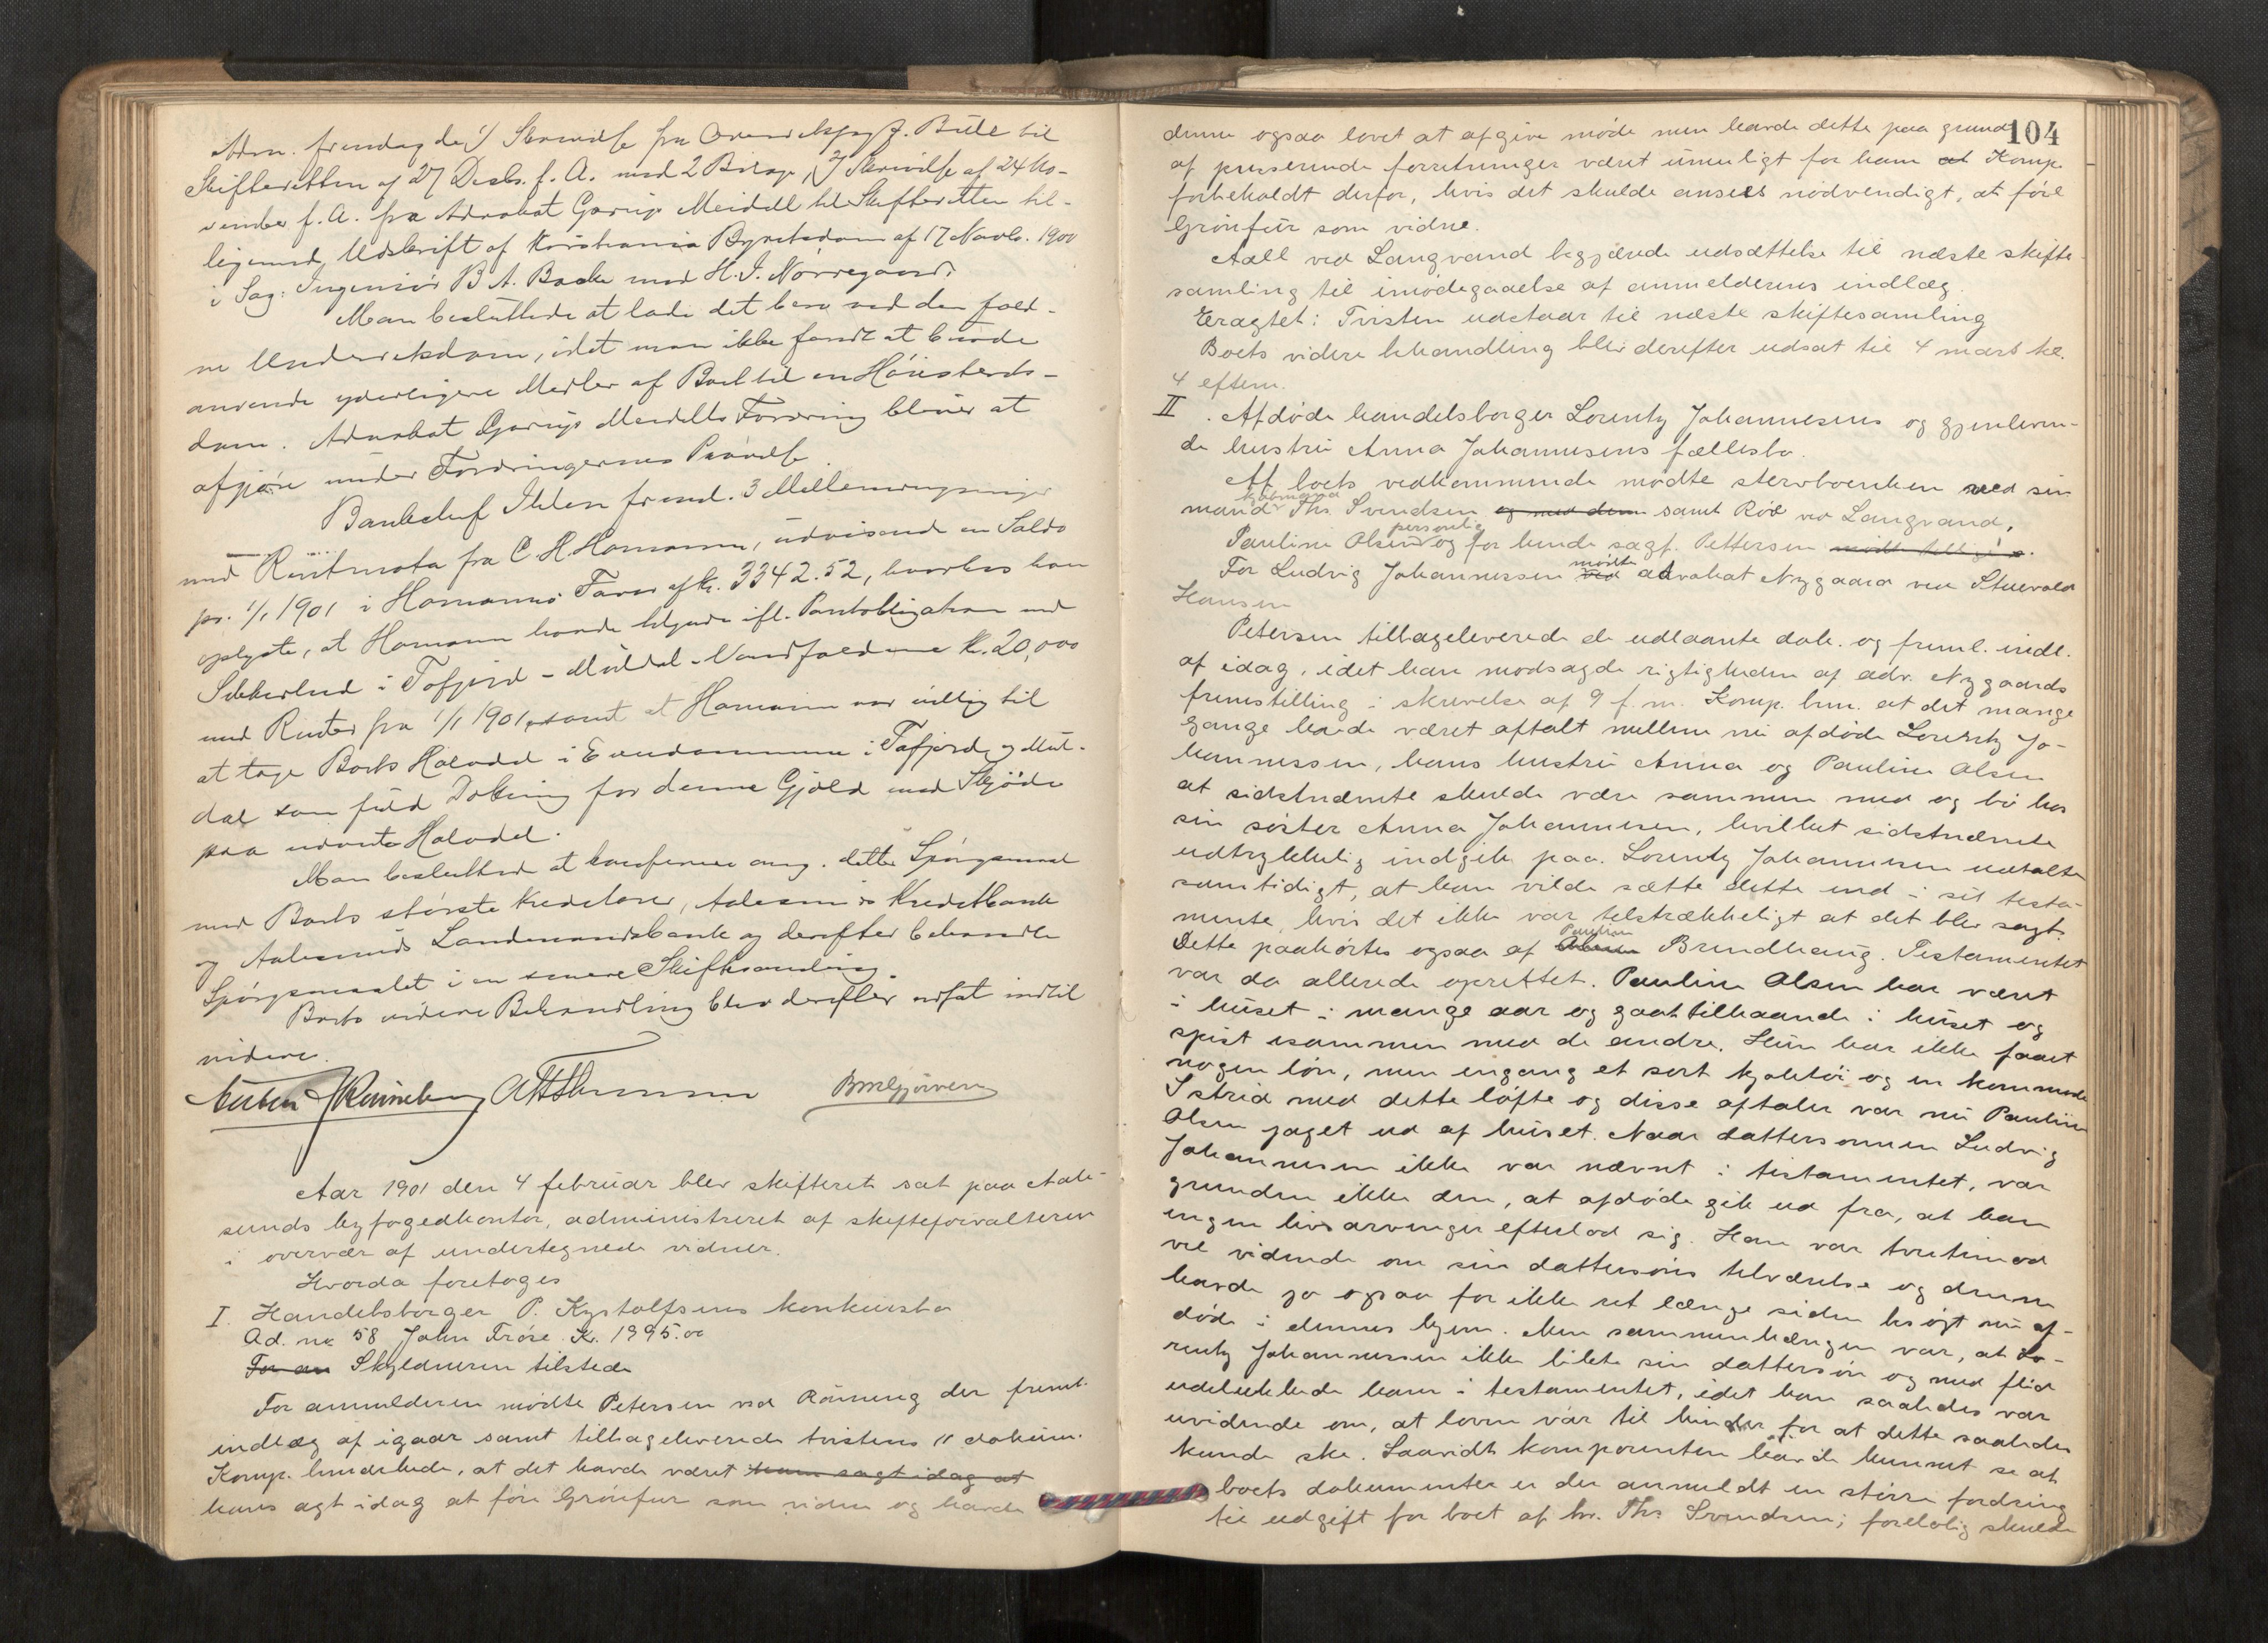 Adm. fremlagde 1) Skrivelse fra Overretssagf. Bull til
Skifteretten af 27 Decbr. f. A. med 2 Bilage, 2) Skrivelse af 24 No-
vember f. A. fra Advokat Garup Meidell til Skifteretten til-
ligemed Udskrift af Kristiania Byretsdom af 17 Novbr. 1900
i Sag: Ingeniör B A. Backe mod H. I. Nörregaard.
Man besluttede at lade det bero ved den fald-
ne Underretsdom, idet man ikke fandt at burde
anvende yderligere Midler af Boet til en Höiesterets-
dom. Advokat Garup Meidells Fordring bliver at
afgjöre under Fordringernes Prövelse.
Bankchef Ihlen freml. 3 Mellemregninger
med Rentenota fra C. H Homann, udvisende en Saldo
pr. 1/1 1901 i Homanns Favør af kr. 3342.52, hvorhos han
oplyste, at Homann havde tilgode ifl. Pantobligation med
Sikkerhed i Tafjord - Muldal-Vandfaldene kr. 20,000
med Renter fra 1/1 1901, samt at Homann var villig til
at tage Boets Halvdel i Eiendommene i Tafjord og Mul-
dal som fuld Dækning for denne Gjæld mod Skjöde
paa nævnte Halvdel.
Man besluttede at konferere ang. dette Spörgsmaal
med Boets störste Kreditorer, Aalesunds Kreditbank
og Aalesunds Landmandsbank og derefter behandle
Spörgsmaalet i en senere Skiftesamling.
Boets videre Behandling blev derefter udsat indtil
videre.
Aar 1901 den 4 februar blev skifteret sat paa Aale-
sunds byfogedkontor, administreret af skifteforvalteren
i overvær af undertegnede vidner.
Hvorda foretoges
I. Handelsborger P. Kystolfsens konkursbo
Ad. no 58 John Fröse. K. 1995.00
For an Skyldneren tilstede
For anmelderen mödte Petersen ved Rönneng der freml.
indlæg af igaar samt tilbageleverede tvistens 11 dokum.
Komp. bemærkede, at det havde været ham sagt idag at
hans agt idag at före Grönfur som vidne og havde
104
denne ogsaa lovet at afgive möde men havde dette paa grund
af presserende forretninger været umuligt for ham at Komp.
forbeholdt derfor, hvis det skulde ansees nödvendigt, at före
Grönfur som vidne.
Aall ved Langvand begjærede udsættelse til næste skifte-
samling til imödegaaelse af anmelderens indlæg.
Eragtet: Tvisten udstaar til næste skiftesamling
Boets videre behandling blev derefter udsat til 4 marts kl.
4 efterm.
II. Afdöde handelsborger Lorentz Johannesens og gjenleven-
de hustru Anna Johannesens fællesbo.
Af boets vedkommende mödte sterboenken ved sin
kjöbmand
mand Ths. Svendsen og med dem samt Röd ved Langvand.
personlig
Pauline Olsen og for hende sagf. Pettersen mödte
mödte
For Ludvig Johannessen ved advokat Nygaard ved Stuevold
Hansen
Petersen tilbageleverede de udlaante dok. og freml. indl.
af idag, idet han modsagde rigtigheden af adv. Nygaards
fremstilling i skrivelse af 9 f. m. Komp. bem. at det mange
gange havde været aftalt mellem nu afdöde Lorentz Jo-
hannessen, hans hustru Anna og Pauline Olsen
at sidstnævnte skulde være sammen med og bo hos
sin söster Anna Johannesen, hvilket sidstnævnte
udtrykkelig indgik paa. Lorentz Johannesen udtalte
samtidigt, at han vilde sætte dette ind i sit testa-
mente, hvis det ikke var tilstrækkeligt at det blev sagt.
Pauline
Dette paahörtes ogsaa af Brendhaug. Testamentet
var da allerede oprettet. Pauline Olsen har været
i huset i mange aar og gaat tilhaande i huset og
spist isammen med de andre. Hun har ikke faaet
nogen lön, men engang et sort kjoletöi og en kommode
I strid med dette löfte og disse aftaler var nu Pauline
Olsen jaget ud af huset. Naar dattersönnen Ludvig
Johannesen ikke var nævnt i testamentet, var
grunden ikke den, at afdöde gik ud fra, at han
ingen livsarvinger efterlod sig. Han var tvertimod
vel vidende om sin dattersöns tilværelse og denne
havde jo ogsaa for ikke ret længe siden besögt nu af-
döde i dennes hjem. Men sammenhængen var, at Lo-
rentz Johannessen ikke likte sin dattersön og med flid
udelukkede ham i testamentet, idet han saaledes var
uvidende om, at loven var til hinder for at dette saaledes
kunde ske. Saavidt komparenten havde kunnet se at
boets dokumenter er der anmeldt en större fordring
til udgift for boet af hr. Ths. Svendsen; forelöbig skulde